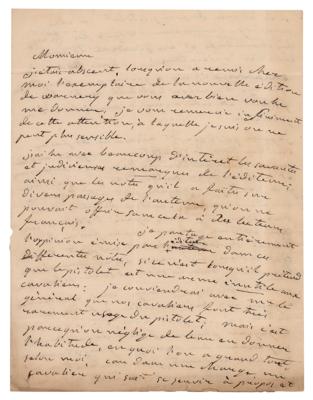 Monsieur
j'etais absent, lorsqu'on a remis chez
moi l'exemplaire de la nouvelle édition
de warnery que vous avez bien voulu
me donner, je vous remercie infiniment
de cette attention, à laquelle je suis on ne
peut plus sensible.
j'ai lu avec beaucoup d'interet les savantes
et judicieuses remarques de l'editeur,
ainsi que les notes qu'il a faites sur
divers passages de l'auteur, qu'on ne
pouvait offrir sans cela à des lecteurs
français.
je partage entièrement
l'oppinion émise par l'editeur dans ces
differentes notes, si ce n'est lorsqu'il prétend
que le pistolet est une arme inutile aux
cavaliers: je conviendrai avec lui
général que nos cavaliers font très
rarement usage du pistolet; mais c'est
parcequ'on néglige de leur en donner
l'habitude, en quoi l'on a grand tort
selon moi, car dans une charge, un
cavalier qui sait se servir à propos et